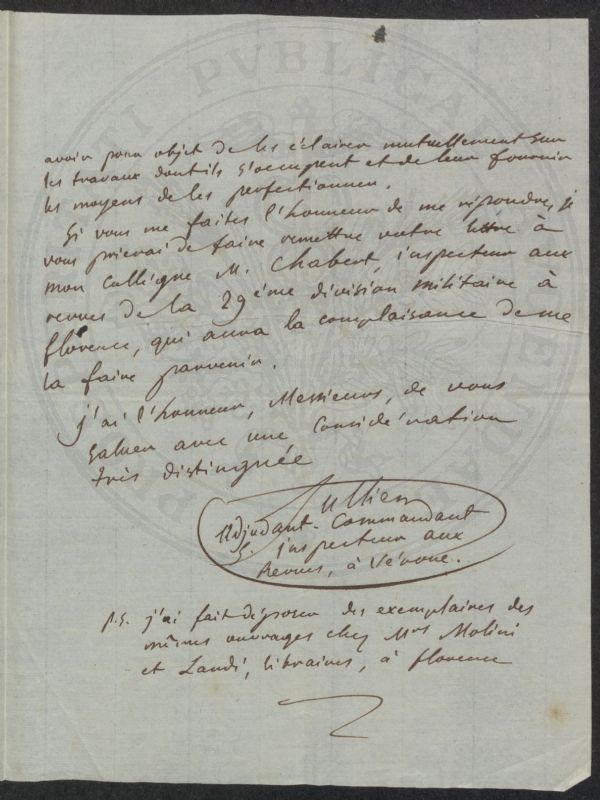 avoir pour objet de les éclairer mutuellement sur
les travaux dont ils s'occupent et de leur fournir
les moyens de les perfectionner.
Si vous me faites l'honneur de me répondre, je
vous prierai de faire remettre votre lettre à
mon collègue M. Chabert, inspecteur aux
revues de la 29ème division militaire à
florence, qui aura la complaisance de me
la faire parvenir.
j'ai l'honneur, Messieurs, de vous
saluer avec une considération
très distinguée
Jullien
adjudant-Commandant
S. inspecteur aux
Revues, à Vérone.
p.s. j'ai fait déposer des exemplaires des
mêmes ouvrages chez Mrs Molini
et Landi, libraires, à florence